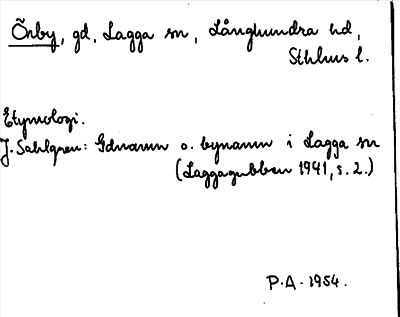 Örby, gd, Lagga sn, Långhundra hd,
Sthlms l.
Etymologi.
J. Sahlgren: Gdnamn o. bynamn i Lagga sn
(Laggagubben 1941, s. 2.)
P.A. 1954.